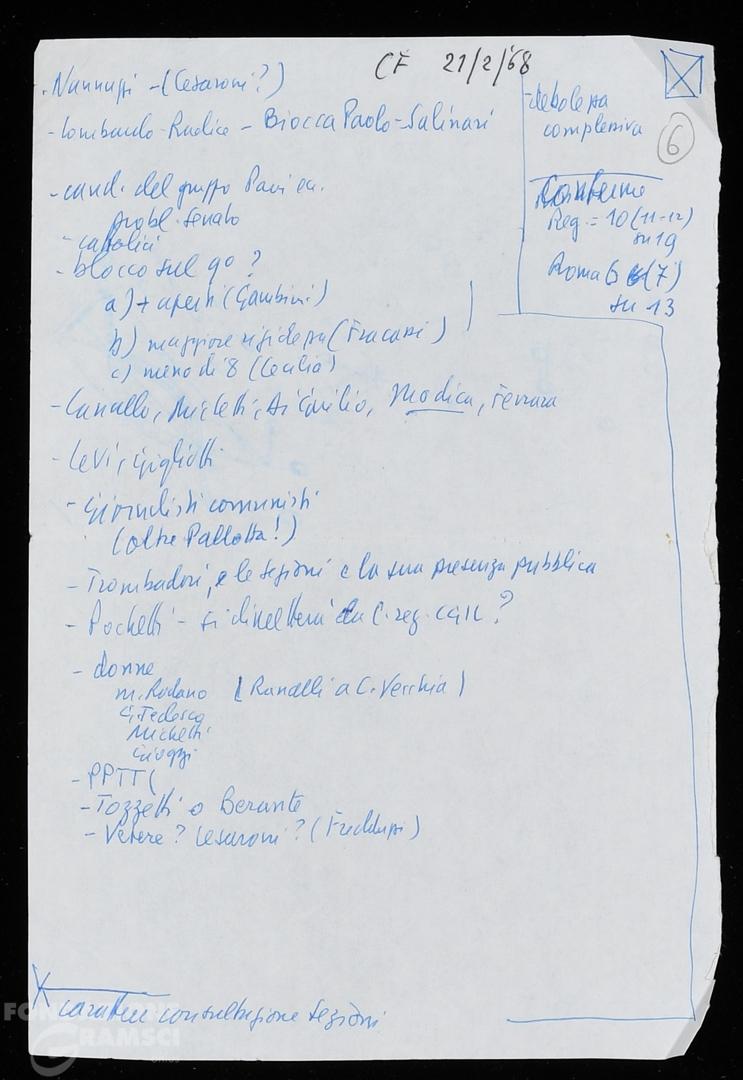 CF 21/2/'68
6
- Nannuzzi - (Cesaroni?)
- Lombardo-Radice - Biocca Paolo - Salinari
- cand. del gruppo Pavi ecc.
probl. senato
- cattolici
- blocco sul 90 ?
a) + aperti (Gambini)
b) maggiore rigidezza (Fracassi)
c) meno di 8 (Cecilia)
- Canullo, Micletti, D'Emilio, Modica, Ferrara
- Levi, Gigliotti
- Giornalisti comunisti
(oltre Pallotta!)
- Trombadori, e le sezioni e la sua presenza pubblica
- Pochetti - si dimetterà da C. reg. CGIL ?
- donne
M. Rodano (Ranalli a C. Vecchia)
G. Tedesco
Michetti
- PPTT (
- Tozzetti o Berante
- Vetere ? Cesaroni ? (Fredduzzi)
caratteri consultazione sezioni
- debolezza
complessiva
Conferme
Reg. = 10 (11-12)
su 19
Roma 6 (7)
su 13
FONDAZIONE
GRAMSCI
ONLUS